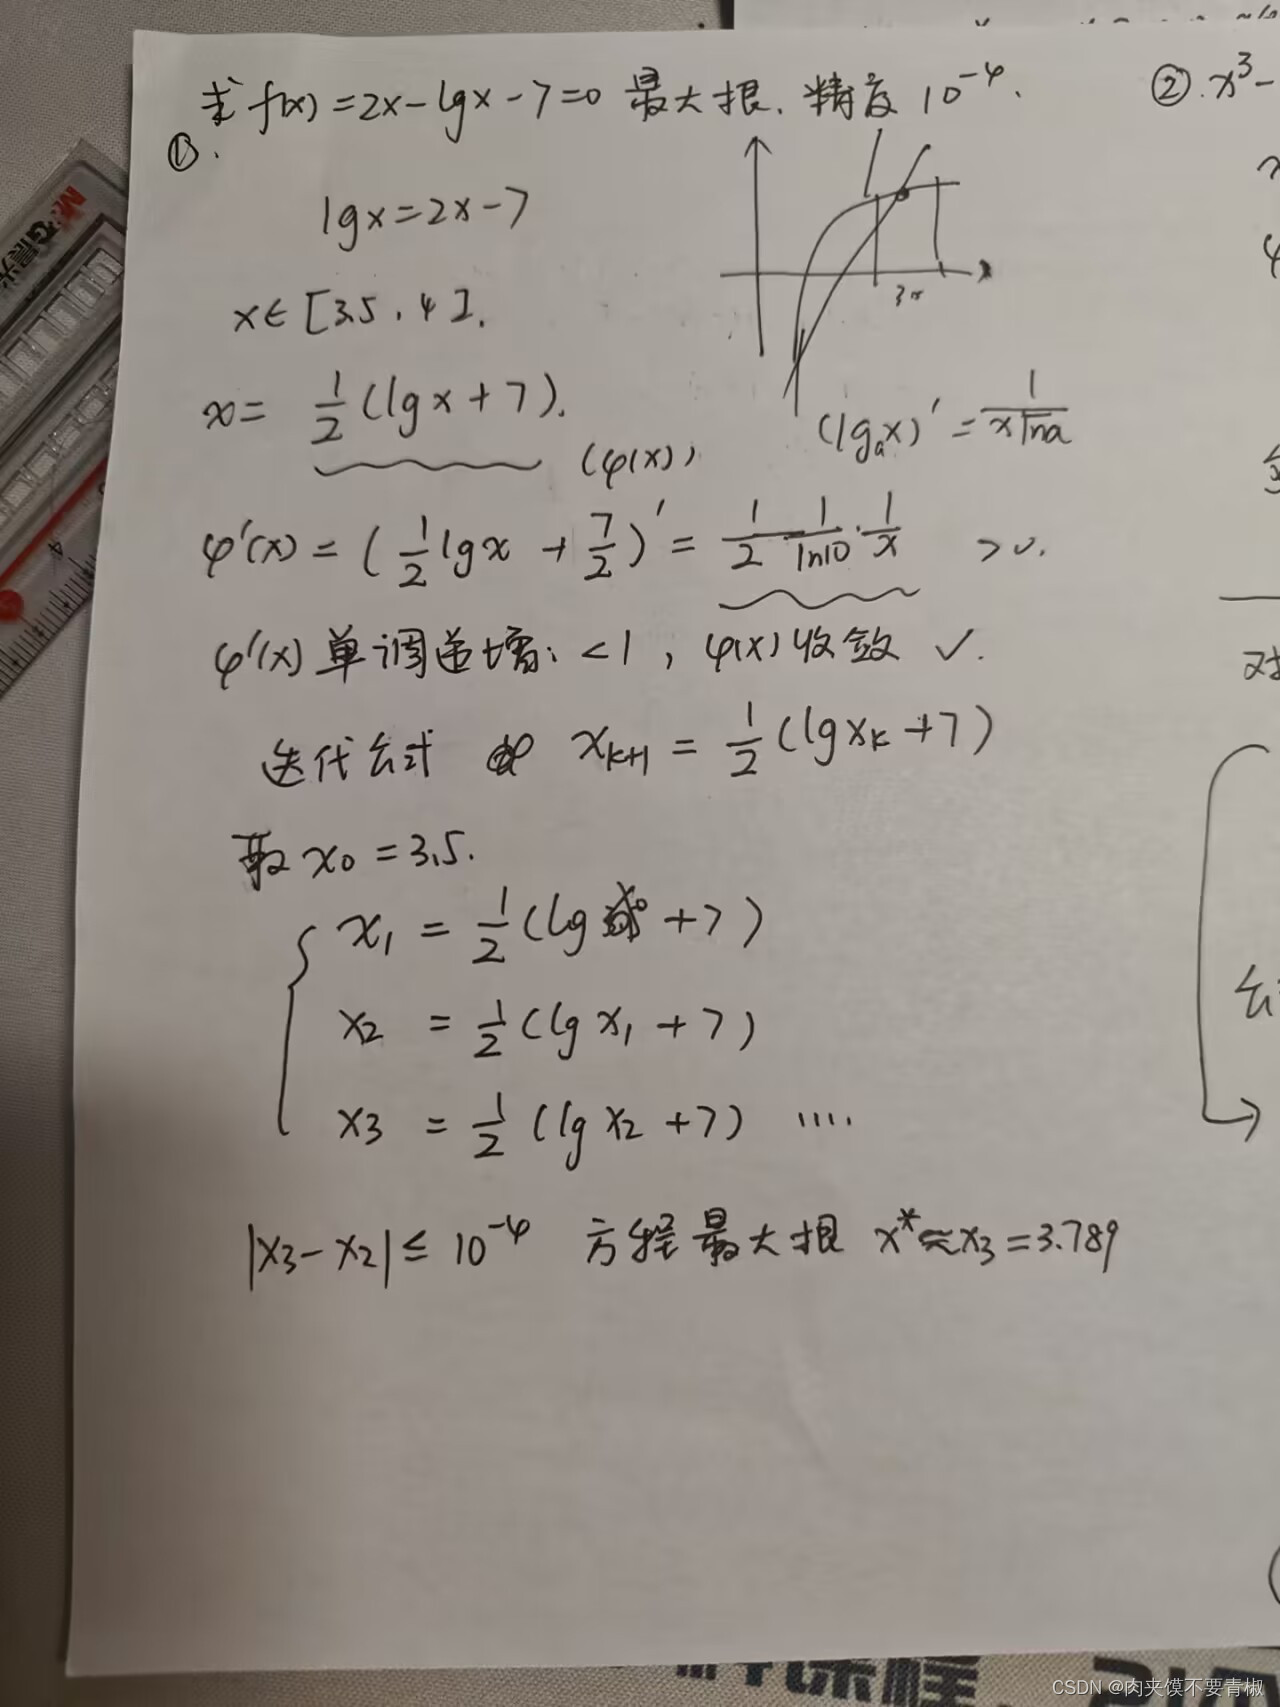 求 f(x) = 2x - lgx - 7 = 0 最大根. 精度 10⁻⁴.
①.
② x³ -
lgx = 2x - 7
x ∈ [3.5, 4].
x = 1/2 (lgx + 7).
(φ(x))
(lgₐx)' = 1/(x lna)
φ'(x) = (1/2 lgx + 7/2)' = 1/2 · 1/ln10 · 1/x > 0.
φ'(x) 单调递增: < 1, φ(x) 收敛 ✓.
迭代公式 xₖ₊₁ = 1/2 (lgxₖ + 7)
取 x₀ = 3.5.
x₁ = 1/2 (lg x₀ + 7)
x₂ = 1/2 (lg x₁ + 7)
x₃ = 1/2 (lg x₂ + 7) ....
|x₃ - x₂| ≤ 10⁻⁴ 方程最大根 x* ≈ x₃ = 3.789
M&G晨光
CSDN @肉夹馍不要青椒